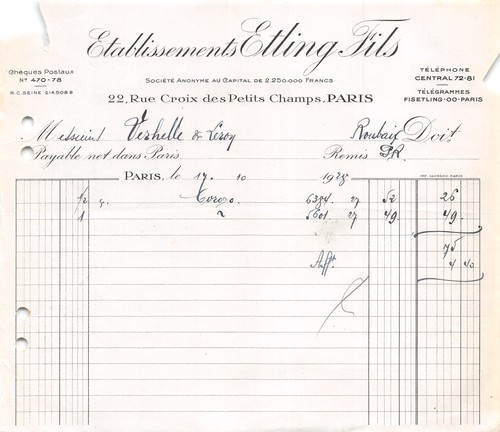 Etablissements Etling Fils
Chèques Postaux
Nº 470-78
R.C. SEINE 214508 B
SOCIÉTÉ ANONYME AU CAPITAL DE 2.250.000 FRANCS
TÉLÉPHONE
CENTRAL 72-81
TÉLÉGRAMMES
FISETLING-00-PARIS
22, Rue Croix des Petits Champs, PARIS
Messieurs & Leroy Roubaix Doit
Payable net dans Paris Remis
PARIS, le 17. 10 1925
1/2 g. Corozo 6394 27 52 26
1 " 5601 27 49 49.
75
Aff. 4 40